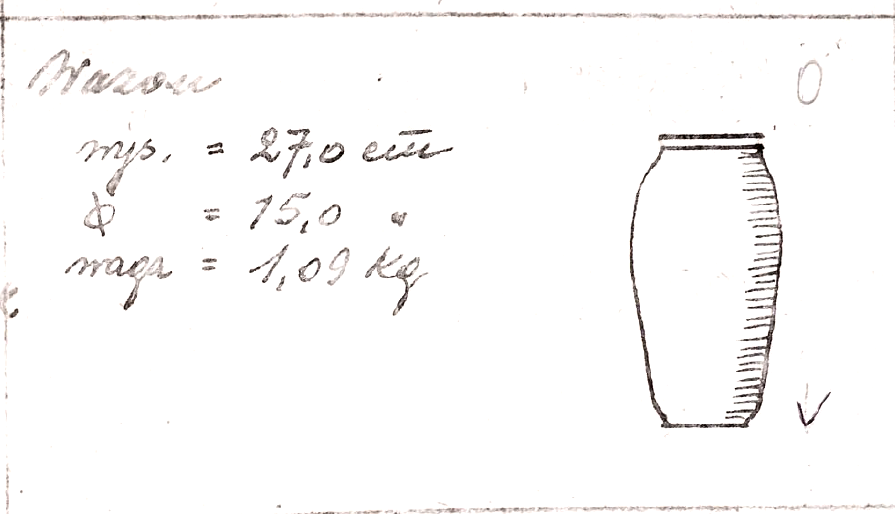 Wazon
wys. = 27,0 cm
ϕ = 15,0 "
waga = 1,09 kg
0